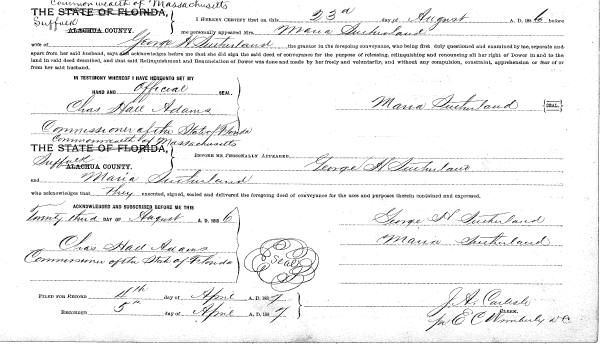 Commonwealth of Massachusetts
THE STATE OF FLORIDA,
Suffolk
ALACHUA COUNTY.
I HEREBY CERTIFY that on this 23d day of August A. D. 1886 before
me personally appeared Mrs. Maria Sutherland
wife of George H Sutherland the grantor in the foregoing conveyance, who being duly questioned and examined by me, separate and
apart from her said husband, says and acknowledges before me that she did sign the said deed of conveyance for the purpose of releasing, relinquishing and renouncing all her right of Dower in and to the
land in said deed described, and that said Relinquishment and Renunciation of Dower was done and made by her freely and voluntarily, and without any compulsion, constraint, apprehension or fear of or
from her said husband.
IN TESTIMONY WHEREOF I HAVE HEREUNTO SET MY
HAND AND Official SEAL.
Chas Hall Adams
Maria Sutherland {SEAL.}
Commissioner of the State of Florida
Commonwealth of Massachusetts
THE STATE OF FLORIDA,
Suffolk
ALACHUA COUNTY.
BEFORE ME PERSONALLY APPEARED George H Sutherland
and Maria Sutherland
who acknowledges that they executed, signed, sealed and delivered the foregoing deed of conveyance for the uses and purposes therein contained and expressed.
ACKNOWLEDGED AND SUBSCRIBED BEFORE ME THIS
Twenty third DAY OF August A. D. 1886
George H Sutherland
Maria Sutherland
Chas Hall Adams
Commissioner of the State of Florida
Seal
FILED FOR RECORD 4th day of April A. D. 1887
RECORDED 5th day of April A. D. 1887
J. A. Carlisle
CLERK.
pr E C Wimberly DC